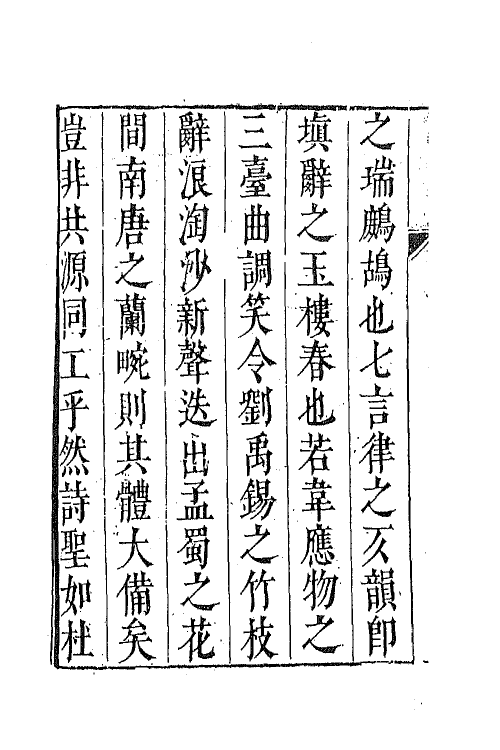 之瑞鷓鴣也七言律之仄韻即
塡辭之玉樓春也若韋應物之
三臺曲調笑令劉禹錫之竹枝
辭浪淘沙新聲迭出孟蜀之花
間南唐之蘭畹則其體大備矣
豈非共源同工乎然詩聖如杜